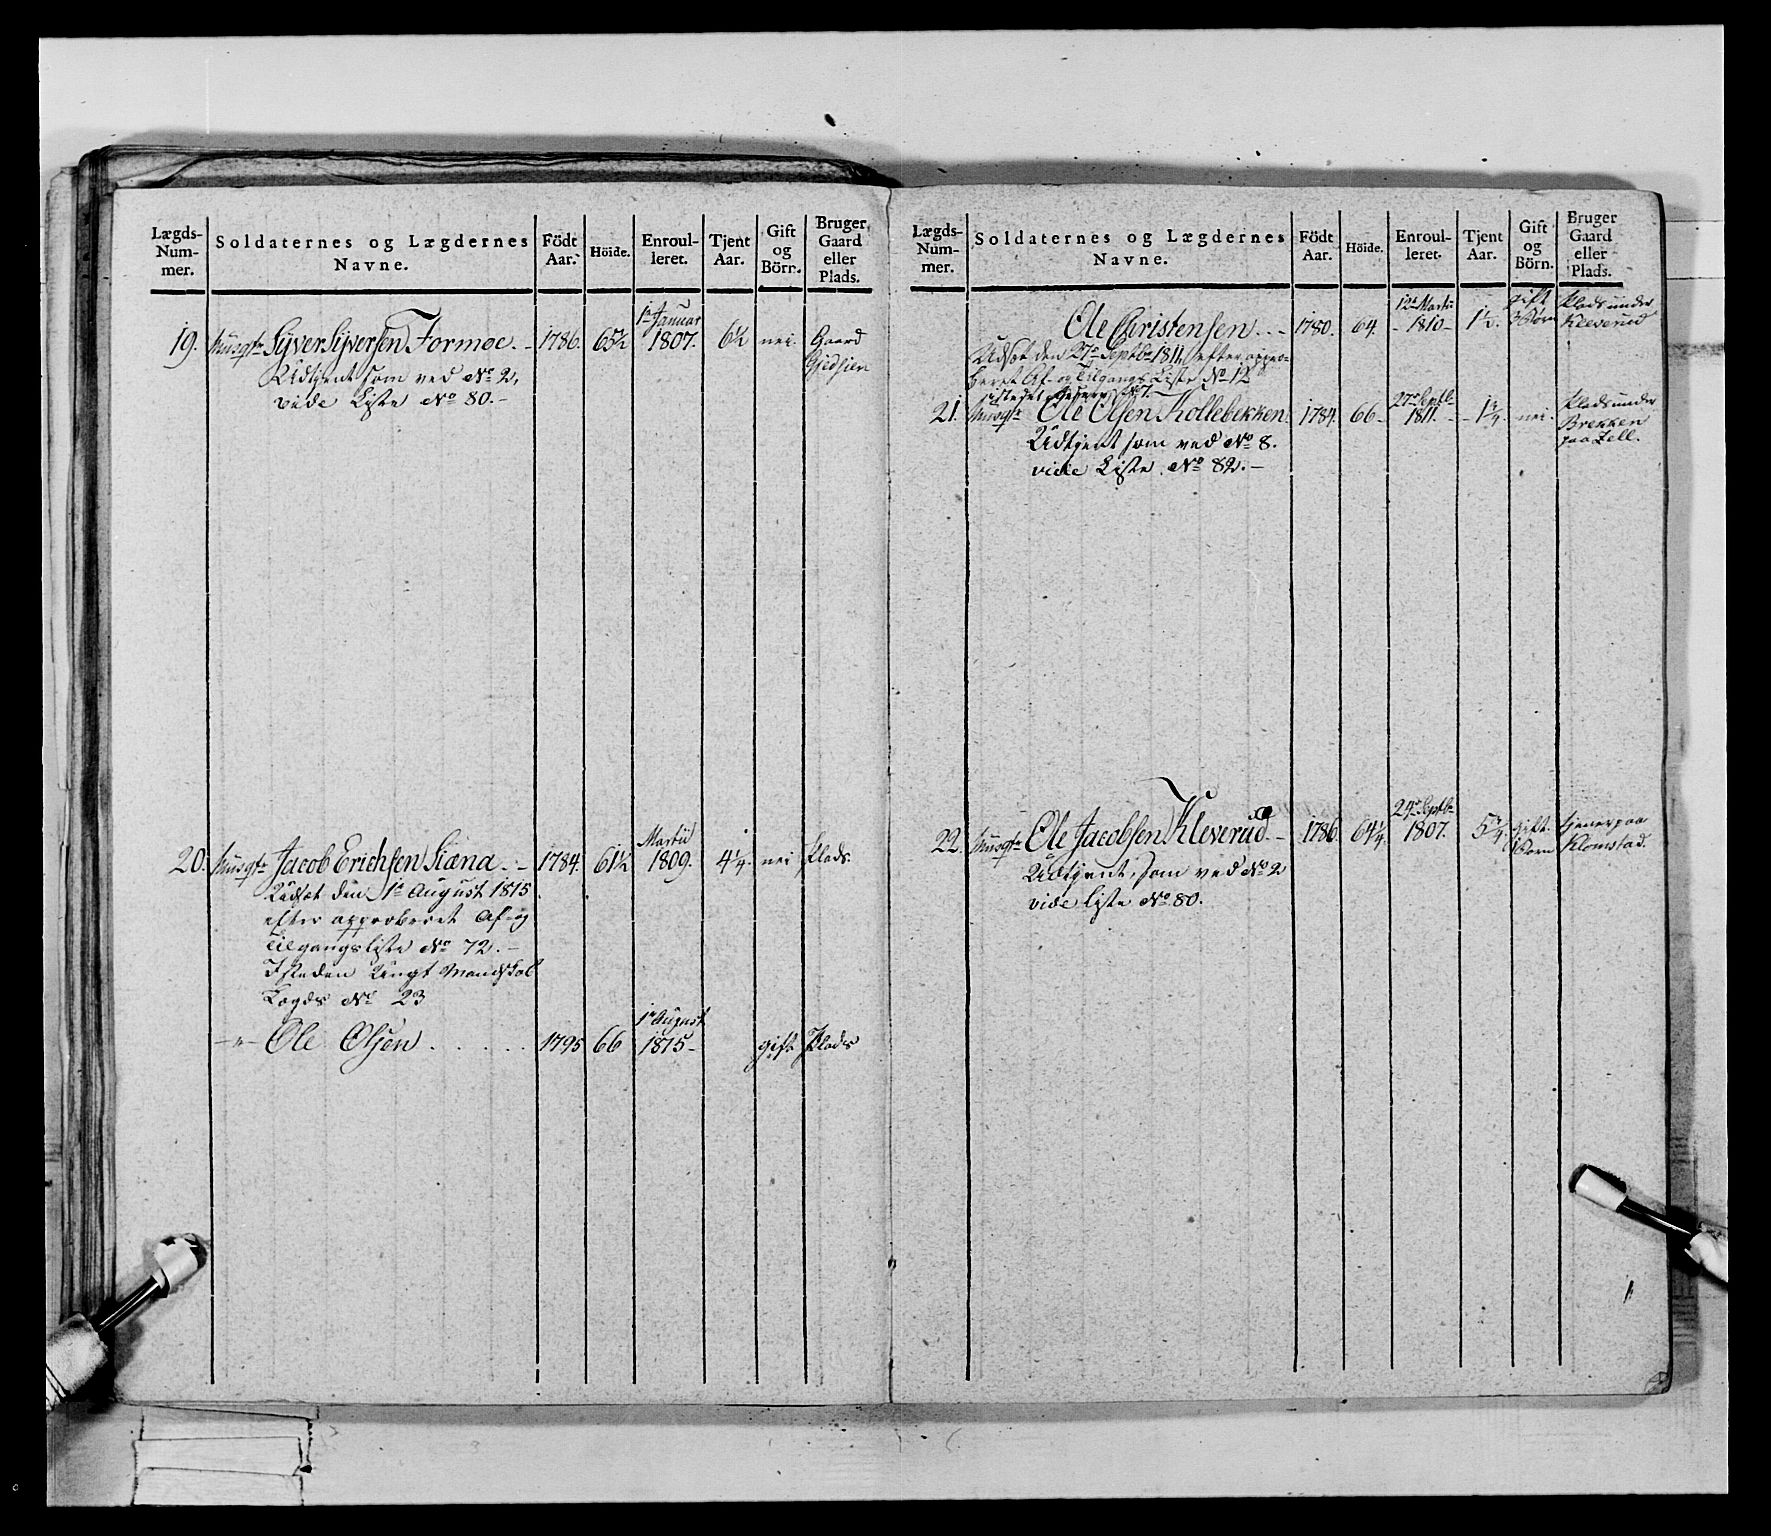 Lægds-Num-mer. Soldaternes og Lægdernes Navne. Födt Aar. Höide. Enroul-leret. Tjent Aar. Gift og Börn. Bruger Gaard eller Plads.
19. Musqtr Syver Syversen Formoe. - 1786. 65½ 1te Januar 1807. 6½ nei. Gaard
Udtjent som ved No 2,
vide Liste No 80. -
20. Musqtr Jacob Erichsen Siæna. - 1784. 61½ Martii 1809. 4¼ nei Plads.
Udsat den 1te August 1815
efter approberet Af- og
Tilgangsliste No 72. -
Isteden Ungt Mandskab
Lægds No 23
-"- Ole Olsen . . . . . 1795 66 1te August 1815- gift Plads
Lægds-Num-mer. Soldaternes og Lægdernes Navne. Födt Aar. Höide. Enroul-leret. Tjent Aar. Gift og Börn. Bruger Gaard eller Plads.
Ole Christensen . . - 1780. 64. 12te Martii - 1810 - 1½. gift 3 Børn Plads under Kleverud
Udsat den 27de Septbr 1811, efter appro-
beret Af- og Tilgangs Liste No 12
21. Musqtr Ole Olsen Kollebekken. 1784. 66 - 27de Septbr 1811. - 1¾. nei. Plads under Brekken paa Zell.
Udtjent som ved No 8.
vide Liste No 82. -
22. Musqtr Ole Jacobsen Kleverud - 1786 64¼ 24de Septbr 1807. 5¾ gift. 1 Barn tjener paa Klomstad.
Udtjent, som ved No 2
vide Liste No 80.